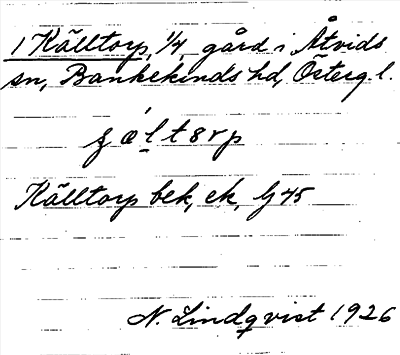 1 Källtorp, 1/4, gård i Åtvids
sn, Bankekinds hd, Östergl.
Källtorp bek, ek, Gj 45
N. Lindqvist 1926